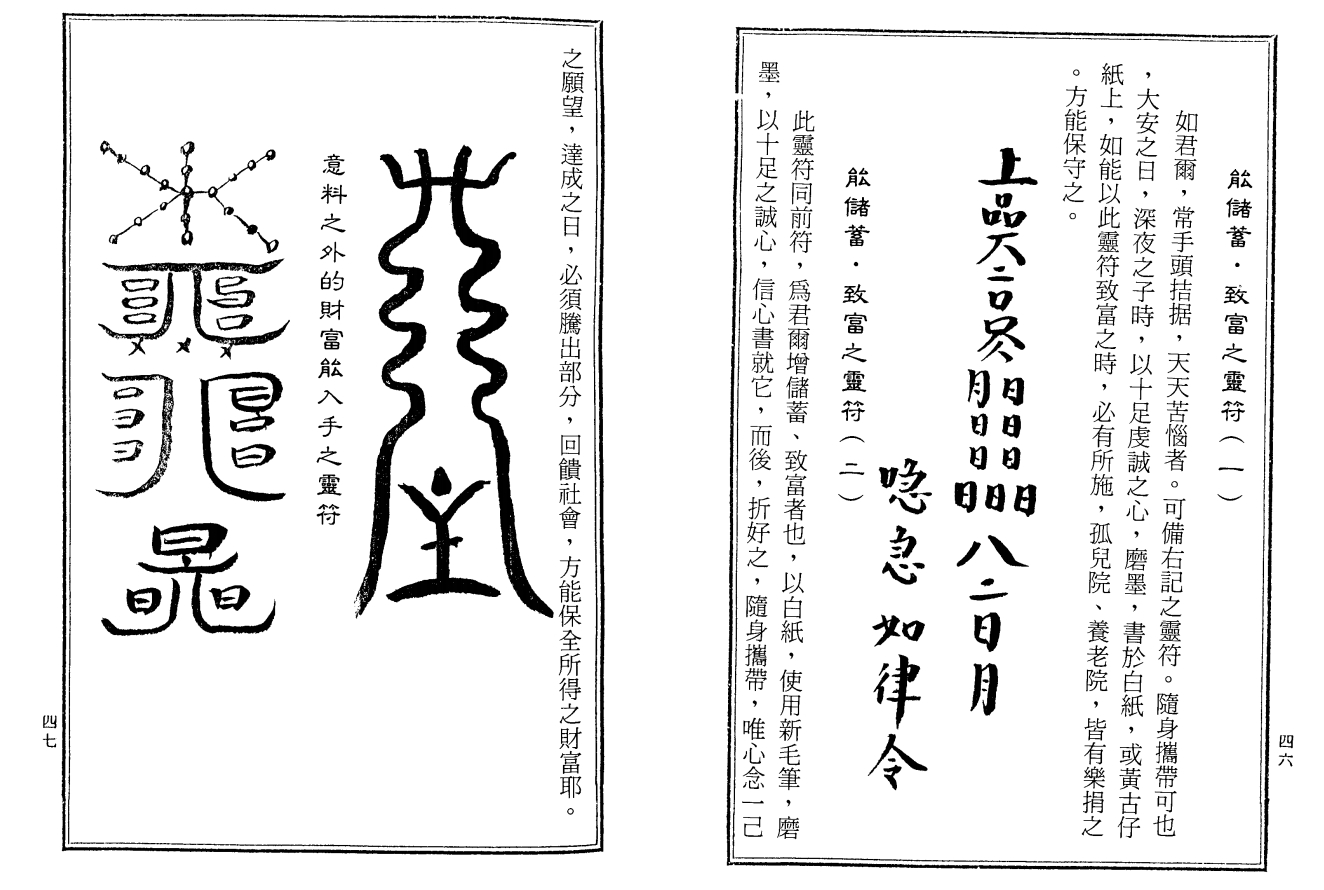 能儲蓄．致富之靈符（一）
如君爾，常手頭拮据，天天苦惱者。可備右記之靈符。隨身攜帶可也
，大安之日，深夜之子時，以十足虔誠之心，磨墨，書於白紙，或黃古仔
紙上，如能以此靈符致富之時，必有所施，孤兒院、養老院，皆有樂捐之
。方能保守之。
八二日月
急如律令
能儲蓄．致富之靈符（二）
此靈符同前符，爲君爾增儲蓄、致富者也，以白紙，使用新毛筆，磨
墨，以十足之誠心，信心書就它，而後，折好之，隨身攜帶，唯心念一己
四六
之願望，達成之日，必須騰出部分，回饋社會，方能保全所得之財富耶。
意料之外的財富能入手之靈符
四七